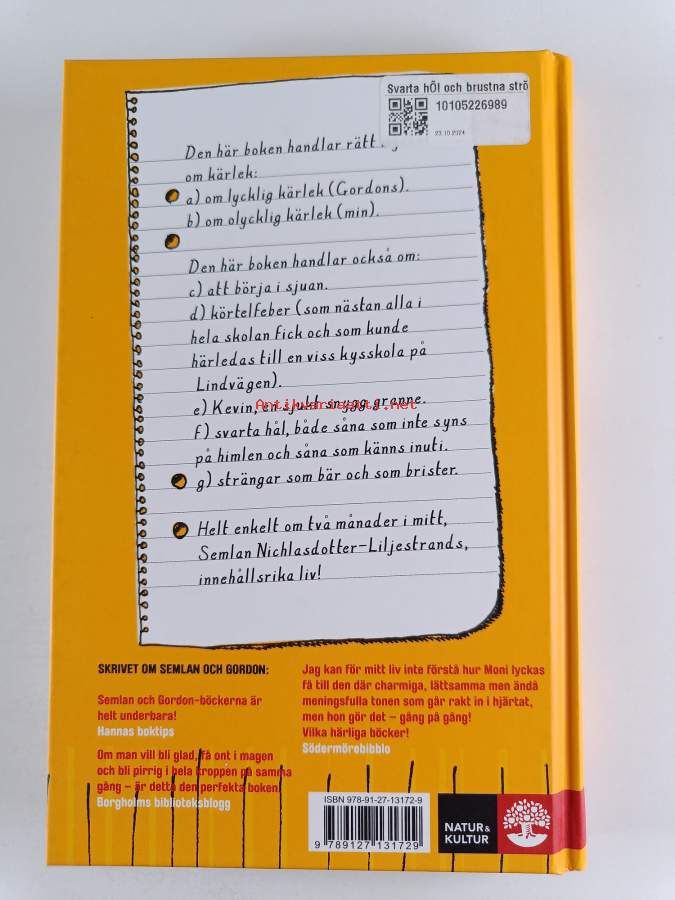 Svarta hÕl och brustna strö
10105226989
23.10.2024
Den här boken handlar rätt
om kärlek:
a) om lycklig kärlek (Gordons).
b) om olycklig kärlek (min).
Den här boken handlar också om:
c) att börja i sjuan.
d) körtelfeber (som nästan alla i
hela skolan fick och som kunde
härledas till en viss kysskola på
Lindvägen).
e) Kevin, en sjukt snygg granne.
Antikvariaatti.net
f) svarta hål, både såna som inte syns
på himlen och såna som känns inuti.
g) strängar som bär och som brister.
Helt enkelt om två månader i mitt,
Semlan Nichlasdotter-Liljestrands,
innehållsrika liv!
SKRIVET OM SEMLAN OCH GORDON:
Semlan och Gordon-böckerna är
helt underbara!
Hannas boktips
Om man vill bli glad, få ont i magen
och bli pirrig i hela kroppen på samma
gång – är detta den perfekta boken.
Borgholms biblioteksblogg
Jag kan för mitt liv inte förstå hur Moni lyckas
få till den där charmiga, lättsamma men ändå
meningsfulla tonen som går rakt in i hjärtat,
men hon gör det – gång på gång!
Vilka härliga böcker!
Södermörebibblo
ISBN 978-91-27-13172-9
9 789127 131729
NATUR &
KULTUR